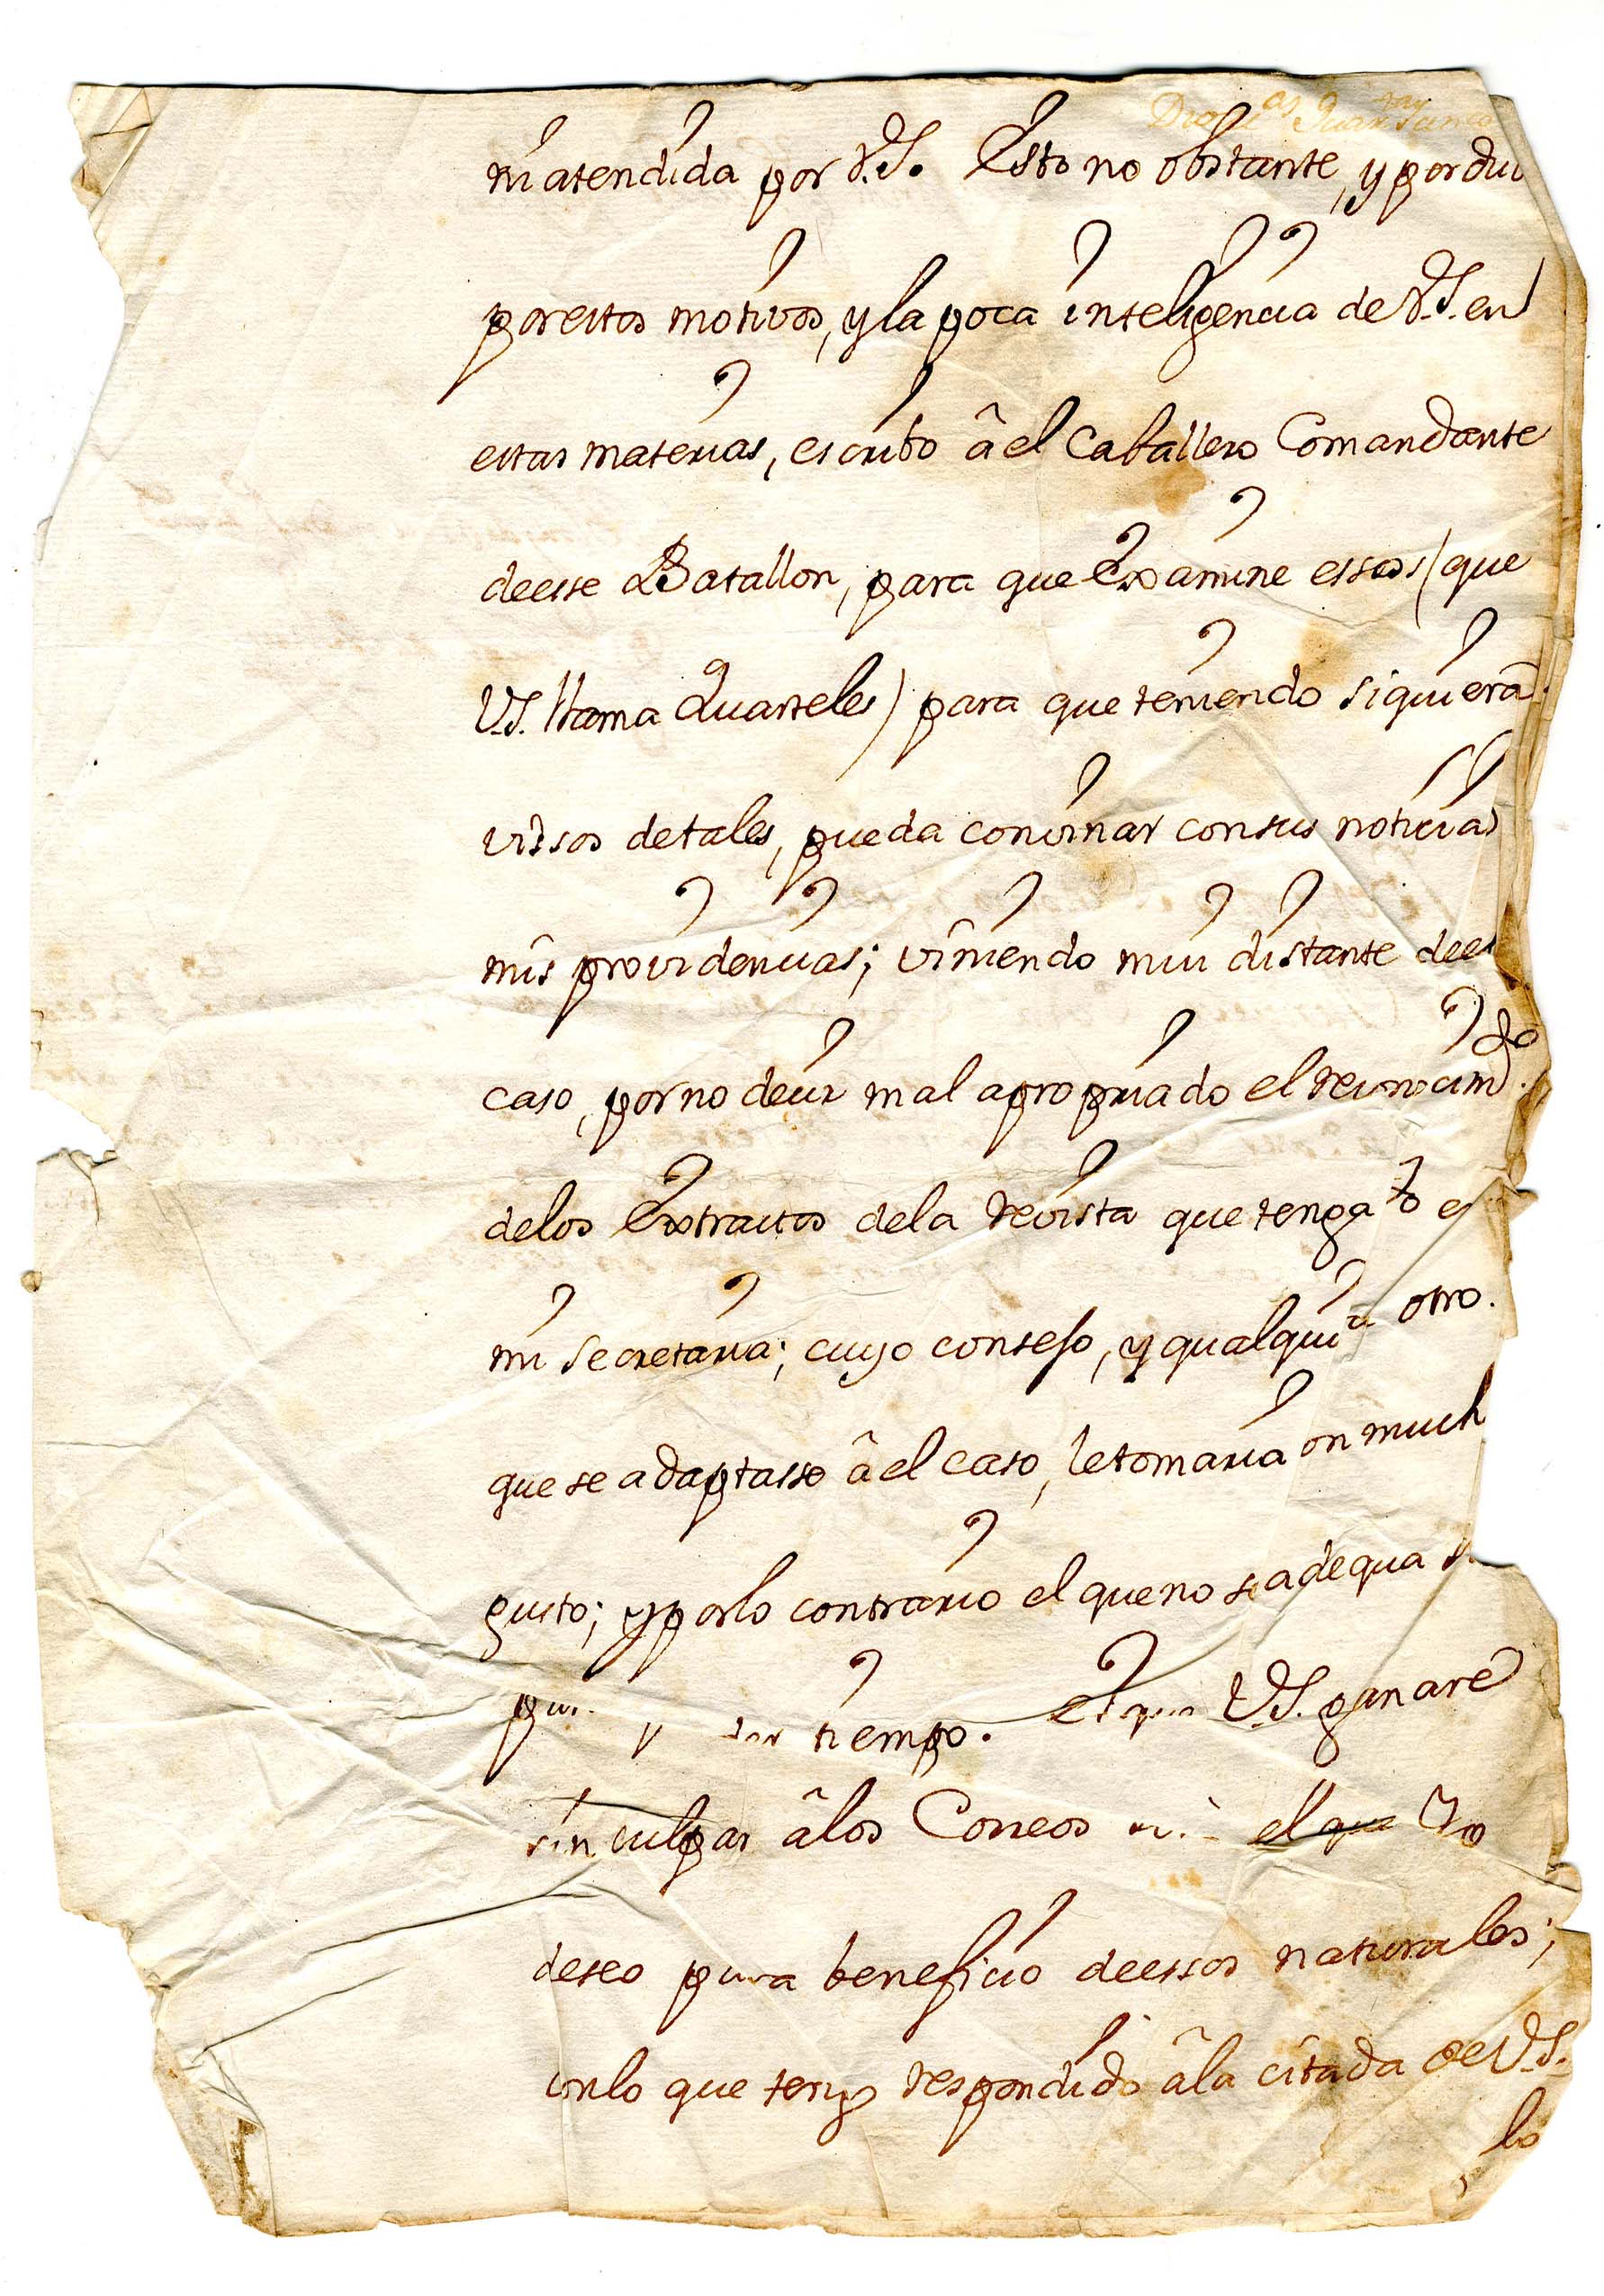 ni atendida por V.S. Esto no obstante, y por du
por estos motivos, y la poca inteligencia de V.S. en
estas materias, escribo â el Caballero Comandante
de esse Batallon, para que Examine essos (que
V.S. llama Quarteles) para que teniendo siquiera
visos de tales, pueda convinar con sus noticias
mis providencias; viniendo mui distante de el
caso, por no decir mal apropriado el reconocim.^to
de los Extractos de la revista que tenga Yo e
mi Secretaria; cuyo consejo, y qualquiera otro
que se adaptasse â el caso, le tomaria con much
gusto; y por lo contrario el que no se adequa
tiempo. V.S. ganare
sin culpar â los Correos el que Yo
deseo para beneficio de essos naturales;
con lo que tengo respondido â la citada de V.S.
lo